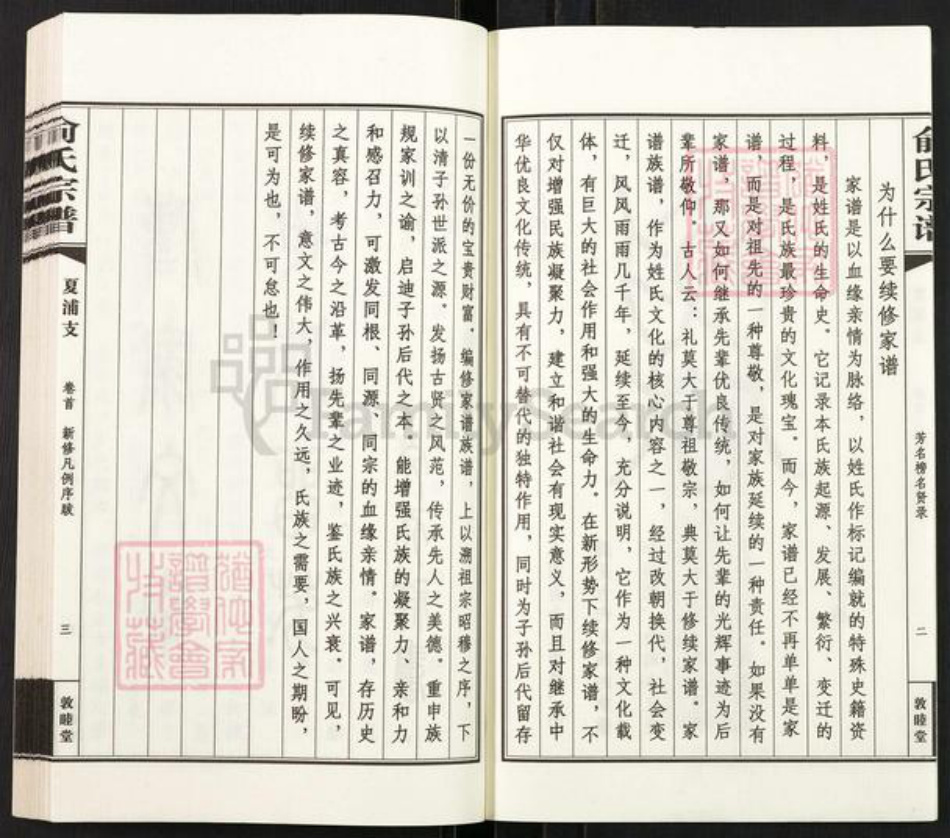 俞氏宗谱
芳名榜名贤录
二
敦睦堂
为什么要续修家谱
家谱是以血缘亲情为脉络，以姓氏作标记编就的特殊史籍资
料，是姓氏的生命史。它记录本氏族起源、发展、繁衍、变迁的
过程，是氏族最珍贵的文化瑰宝。而今，家谱已经不再单单是家
谱，而是对祖先的一种尊敬，是对家族延续的一种责任。如果没有
家谱，那又如何继承先辈优良传统，如何让先辈的光辉事迹为后
辈所敬仰。古人云：礼莫大于尊祖敬宗，典莫大于修续家谱。家
谱族谱，作为姓氏文化的核心内容之一，经过改朝换代，社会变
迁，风风雨雨几千年，延续至今，充分说明，它作为一种文化载
体，有巨大的社会作用和强大的生命力。在新形势下续修家谱，不
仅对增强民族凝聚力，建立和谐社会有现实意义，而且对继承中
华优良文化传统，具有不可替代的独特作用，同时为子孙后代留存
一份无价的宝贵财富。编修家谱族谱，上以溯祖宗昭穆之序，下
以清子孙世派之源。发扬古贤之风范，传承先人之美德。重申族
规家训之谕，启迪子孙后代之本。能增强氏族的凝聚力、亲和力
和感召力，可激发同根、同源、同宗的血缘亲情。家谱，存历史
之真容，考古今之沿革，扬先辈之业迹，鉴氏族之兴衰。可见，
续修家谱，意义之伟大，作用之久远，氏族之需要，国人之期盼，
是可为也，不可怠也！
俞氏宗谱
夏浦支
卷首 新修凡例序跋
三
敦睦堂
FamilySearch